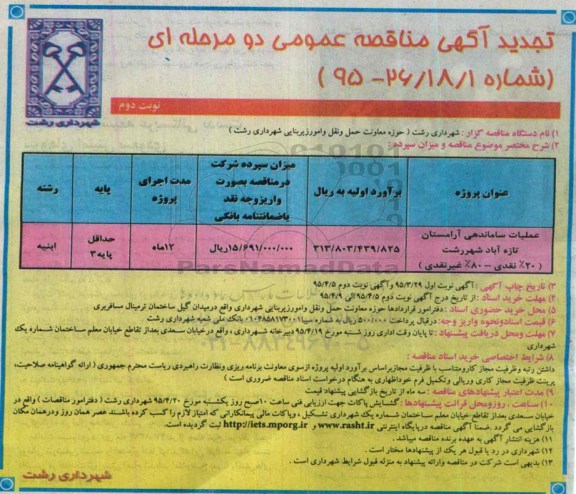 تجدید آگهی مناقصه عمومی دو مرحله ای
(شماره ۲۶/۱۸/۱- ۹۵ )
نوبت دوم
شهرداری رشت
۱) نام دستگاه مناقصه گزار : شهرداری رشت ( حوزه معاونت حمل ونقل وامورزیربنایی شهرداری رشت )
۲) شرح مختصر موضوع مناقصه و میزان سپرده :
عنوان پروژه
برآورد اولیه به ریال
میزان سپرده شرکت درمناقصه بصورت واریزوجه نقد یاضمانتنامه بانکی
مدت اجرای پروژه
پایه
رشته
عملیات ساماندهی آرامستان تازه آباد شهررشت (۲۰٪ نقدی – ۸۰٪ غیرنقدی )
۳۱۳/۸۰۳/۴۳۹/۸۲۵
۱۵/۶۹۱/۰۰۰/۰۰۰ریال
۱۲ماه
حداقل پایه۳
ابنیه
۳) تاریخ چاپ آگهی : آگهی نوبت اول ۹۵/۳/۲۹ وآگهی نوبت دوم ۹۵/۴/۵
۴) مهلت خرید اسناد : از تاریخ درج آگهی نوبت دوم ۹۵/۴/۵ الی ۹۵/۴/۹
۵) محل خرید حضوری اسناد : دفترامور قراردادها حوزه معاونت حمل ونقل وامورزیربنایی شهرداری واقع درمیدان گیل ساختمان ترمینال مسافربری
۶) قیمت اسنادونحوه واریز وجه: درقبال پرداخت ۵۰۰/۰۰۰ ریال به شماره سیبا ۰۱۰۴۸۵۸۱۷۳۰۰۱ بانک ملی شعبه شهرداری رشت
۷) مهلت ومحل دریافت پیشنهاد : تا پایان وقت اداری روز شنبه مورخ ۹۵/۴/۱۹ دبیرخانه شهرداری ، واقع درخیابان سعدی بعداز تقاطع خیابان معلم ساختمان شماره یک شهرداری
۸) شرایط اختصاصی خرید اسناد مناقصه :
داشتن رتبه وظرفیت مجاز کارومتناسب با ظرفیت مجازبراساس برآورد اولیه پروژه ازسوی معاونت برنامه ریزی ونظارت راهبردی ریاست محترم جمهوری ( ارائه گواهینامه صلاحیت، پرینت ظرفیت مجاز کاری وریالی وتکمیل فرم خوداظهاری به هنگام درخواست اسناد مناقصه ضروری است )
۹) مدت اعتبار پیشنهادهای مناقصه : سه ماه از تاریخ بازگشایی پیشنهاد قیمت
۱۰) ساعت ، روزومحل قرائت پیشنهادها : گشایش پاکات جهت ارزیابی فنی ساعت ۱۰صبح روز یکشنبه مورخ ۹۵/۴/۲۰ شهرداری رشت ( دفترامور مناقصات ) واقع در خیابان سعدی بعداز تقاطع خیابان معلم ساختمان شماره یک شهرداری تشکیل ، وپاکات مالی پیمانکارانی که امتیاز لازم را کسب کرده باشند، عصر همان روز ودرهمان مکان بازگشایی می گردد .ضمنا آگهی مناقصه درپایگاه اینترنتی www.rasht.ir و http://iets.mporg.ir ثبت گردیده است.
۱۱) هزینه انتشار آگهی به عهده برنده مناقصه میباشد .
۱۲) شهرداری در رد یا قبول هر یک از پیشنهادها مختار است .
۱۳) بدیهی است شرکت در مناقصه وارائه پیشنهاد به منزله قبول شرایط شهرداری است .
شهرداری رشت
ParsNamadData